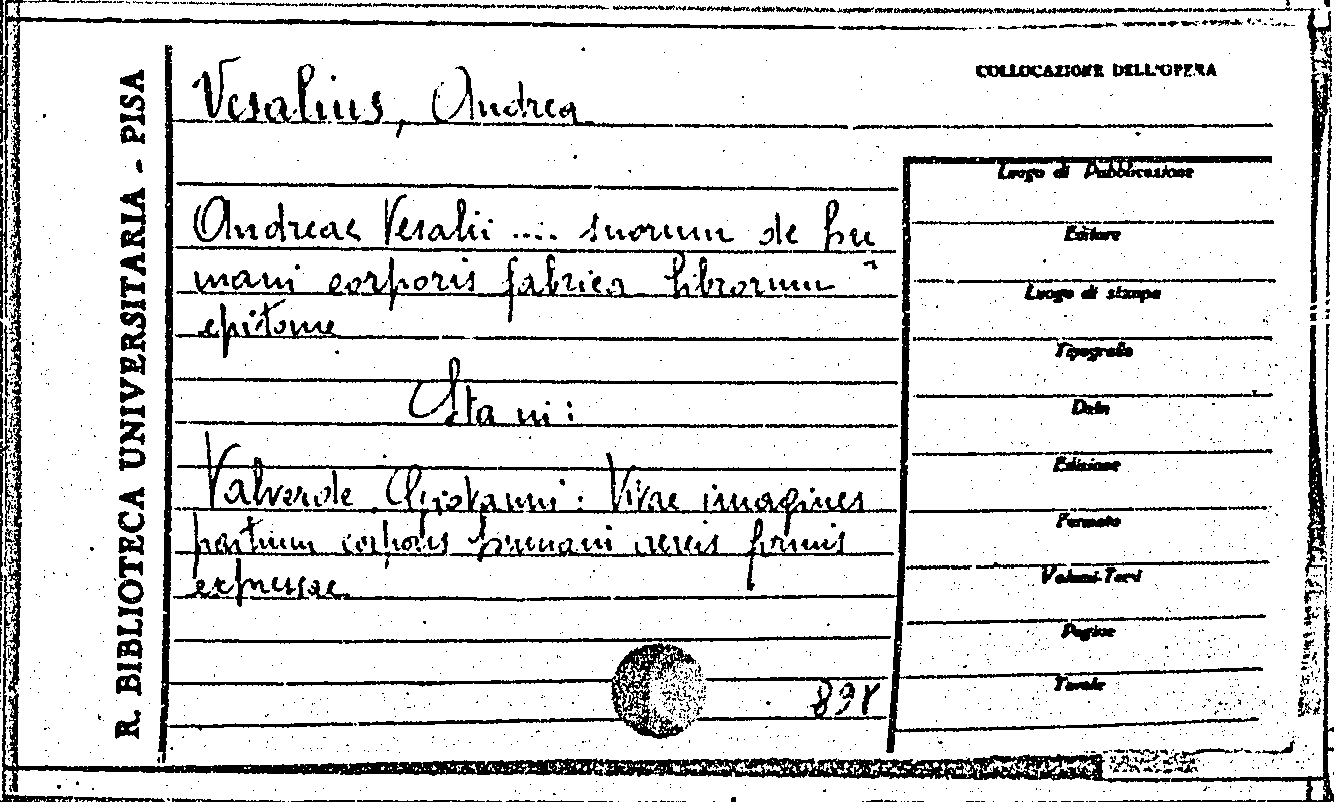 R. BIBLIOTECA UNIVERSITARIA - PISA
COLLOCAZIONE DELL'OPERA
Vesalius, Andrea
Andreae Vesalii .... suorum de hu
mani corporis fabrica librorum
epitome
Sta in:
Valverde Giovanni: Vivae imagines
partium corporis humani aereis formis
expressae
Luogo di Pubblicazione
Editore
Luogo di stampa
Tipografo
Data
Edizione
Formato
Volumi-Tomi
Pagine
Tavole